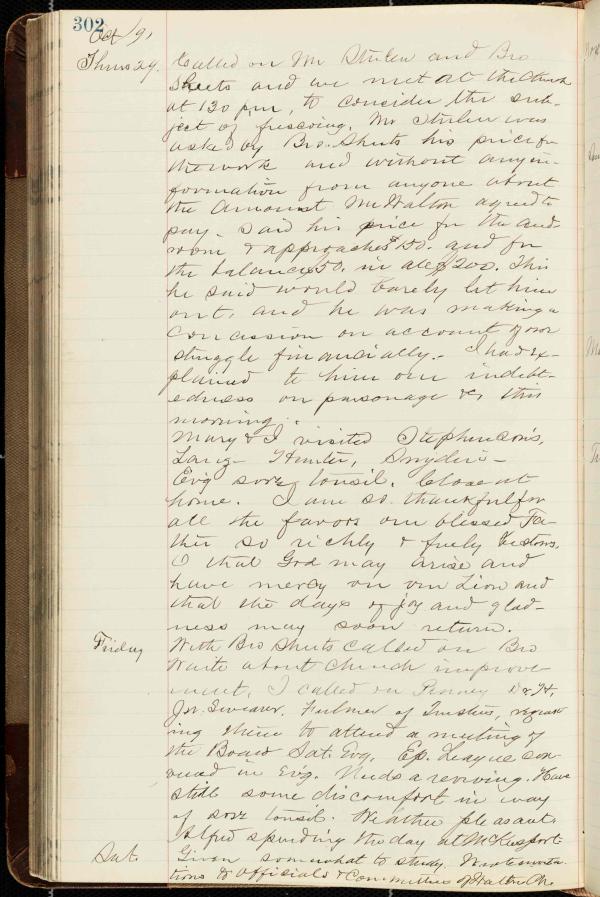 302
Oct 91
Thurs 29. Called on Mr Stulen and Bro
Sheets and we met at the Church
at 130 p,m, to consider the sub-
ject of frescoing. Mr Stulen was
asked by Bro. Sheets his price for
the work and without any in-
formation from anyone about
the amount Mr Walton agreed to
pay. Said his price for the aud-
room & approaches $150. and for
the balance $50. in all $200. This
he said would barely let him
out, and he was making a
concession on account of our
struggle financially. I had ex-
plained to him our indebt-
edness on parsonage &c this
morning.
Mary & I visited Stephenson's,
Lang- Hunter, Snyder's-
Ev'g sore tonsil. Close at
home. I am so thankful for
all the favors our blessed Fa-
ther so richly & freely bestows,
O that God may arise and
have mercy on our Zion and
that the days of joy and glad-
ness may soon return.
Friday With Bro Sheets called on Bro
Waite about church improve
ment, I called on Penney Dr H,
Jos. Swearer, Fulmer of Trustees, request
ing them to attend a meeting of
the Board Sat. Evg. Ep. League con-
vened in Ev'g. Needs a reviving. Have
still some discomfort in way
of sore tonsil. Weather pleasant
Alfred spending the day at McKeesport
Sat. Given somewhat to study, Wrote invita
tions to Officials & Committee of Walton Ch.